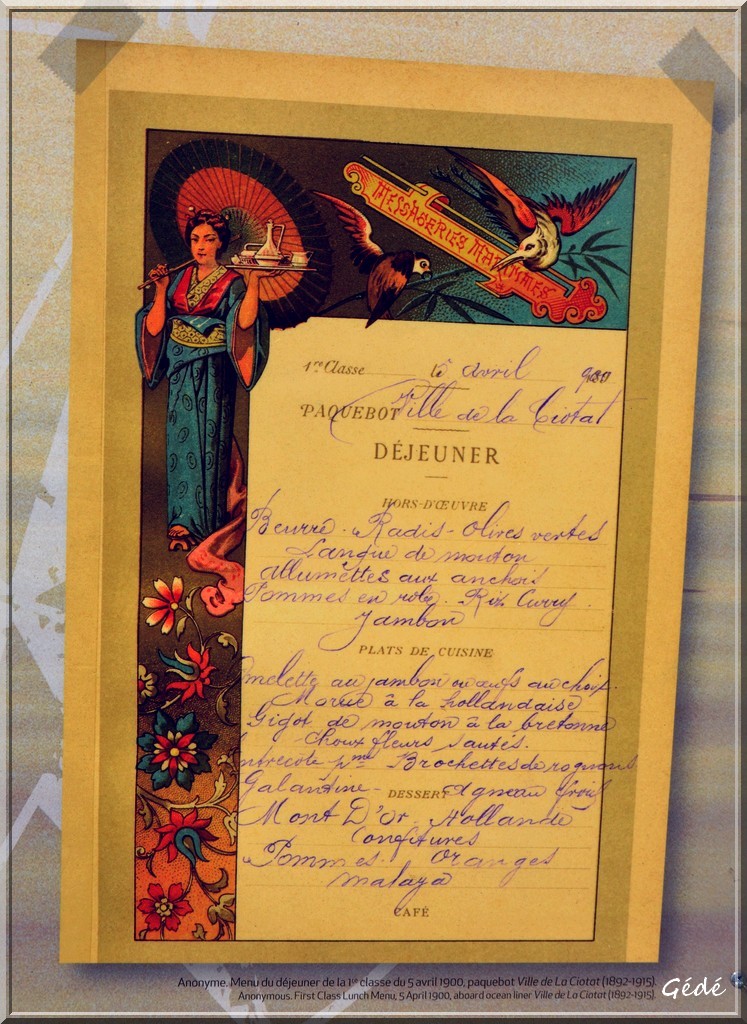 MESSAGERIES MARITIMES
1re Classe 5 avril 1900
PAQUEBOT Ville de la Ciotat
DÉJEUNER
HORS-D'ŒUVRE
Beurre - Radis - Olives vertes
Langue de mouton
allumettes aux anchois
Pommes en robe. Riz Curry.
Jambon
PLATS DE CUISINE
Omelette au jambon ou œufs au choix.
Morue à la hollandaise
Gigot de mouton à la bretonne
Choux fleurs sautés.
Entrecôte pme Brochettes de rognons
Galantine - Agneau froid
DESSERT
Mont D'Or. Hollande
Confitures
Pommes. Oranges
Malaga
CAFÉ
Anonyme. Menu du déjeuner de la 1re classe du 5 avril 1900, paquebot Ville de La Ciotat (1892-1915).
Anonymous. First Class Lunch Menu, 5 April 1900, aboard ocean liner Ville de La Ciotat (1892-1915).
Gédé